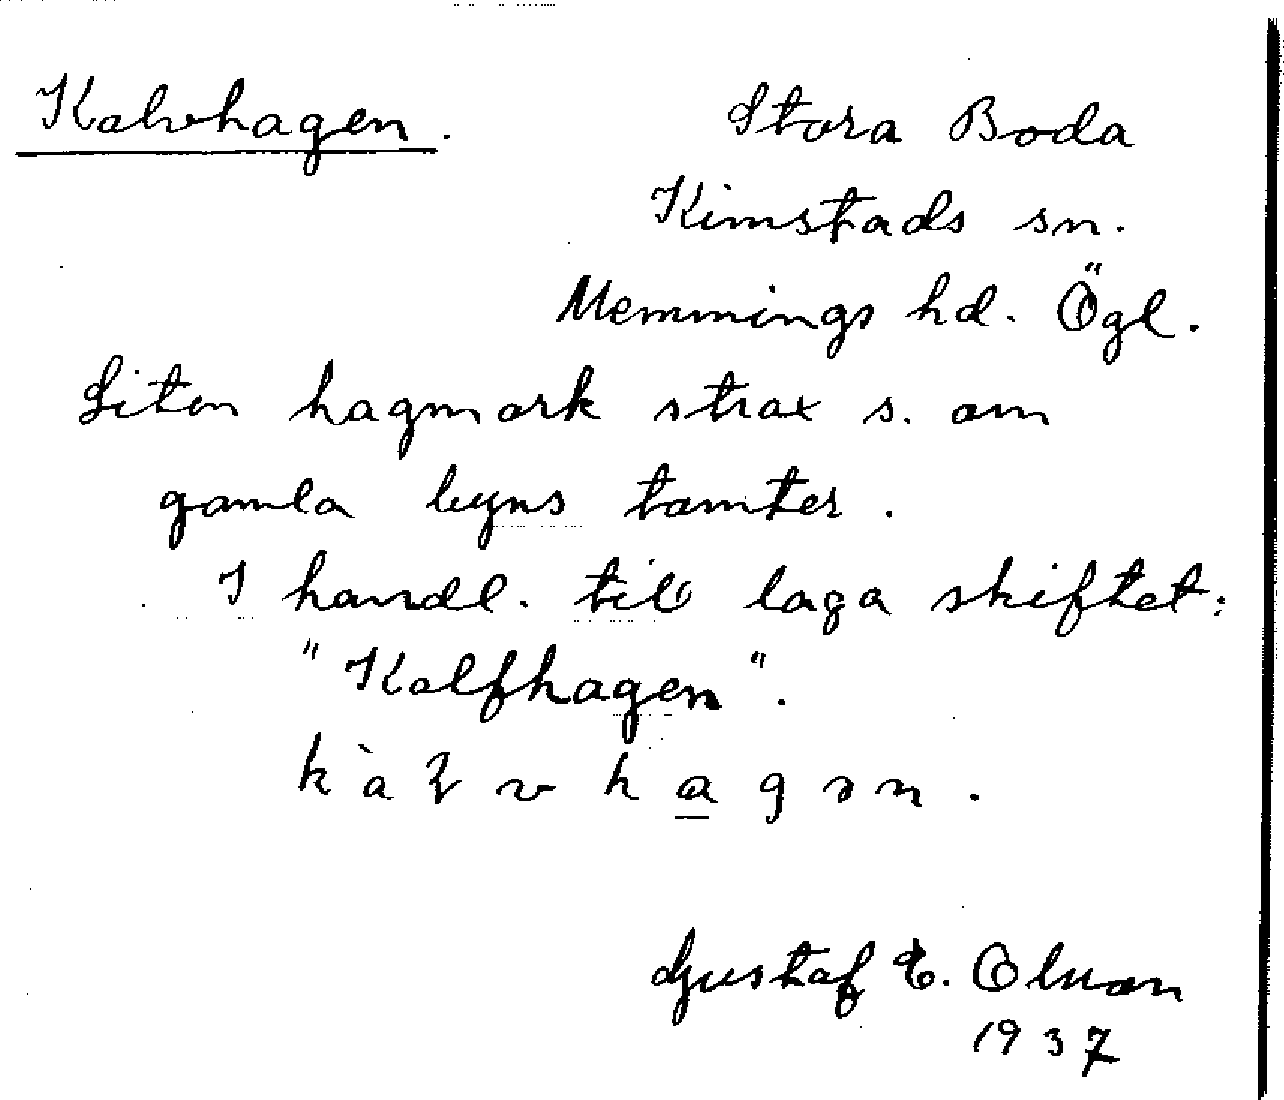 Kalvhagen. Stora Boda
Kimstads sn.
Memmings hd. Ögl.
Liten hagmark strax s. om
gamla byns tomter.
I handl. till laga skiftet:
"Kalfhagen".
Gustaf E. Olsson
1937